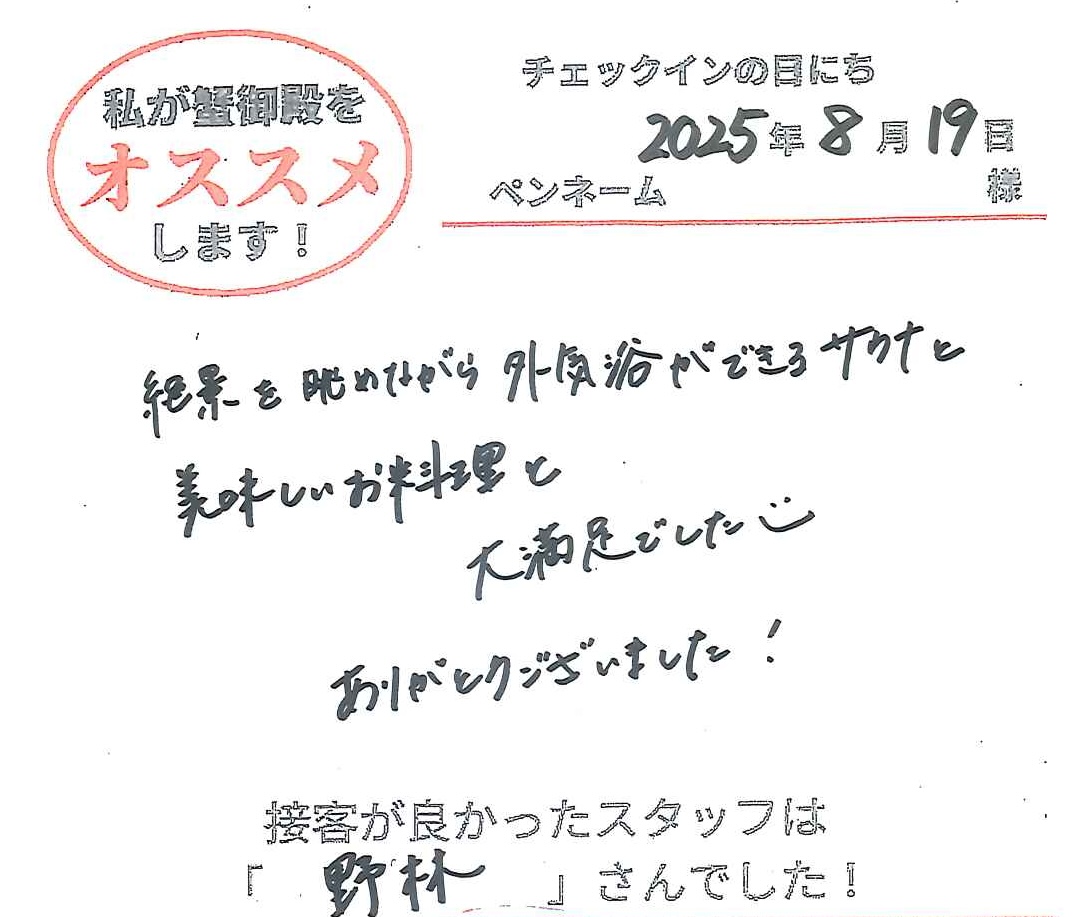 私が蟹御殿を
オススメ
します!
チェックインの日にち
2025年8月19日
ペンネーム 様
絶景を眺めながら外気浴ができるサウナと
美味しいお料理と
大満足でした
ありがとうございました!
接客が良かったスタッフは
「野林」さんでした!